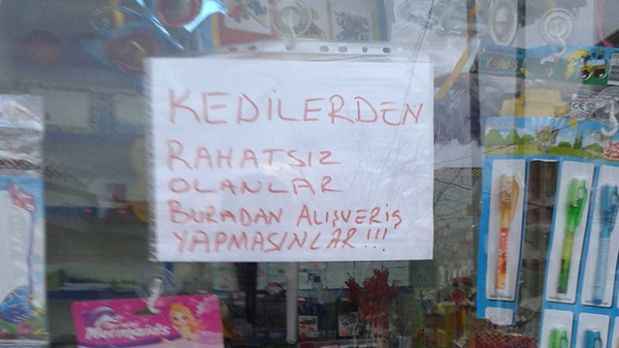 KEDİLERDEN
RAHATSIZ
OLANLAR
BURADAN ALIŞVERİŞ
YAPMASINLAR!!!
Mermaids